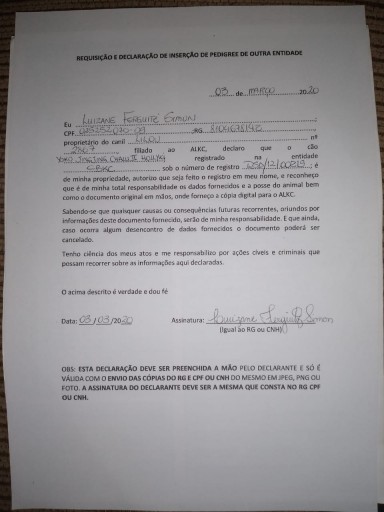 REQUISIÇÃO E DECLARAÇÃO DE INSERÇÃO DE PEDIGREE DE OUTRA ENTIDADE
03 de MARÇO 2020
Eu LUIZANE SIMON
CPF RG
proprietário do canil nº
2867 filiado ao ALKC, declaro que o cão
registrado na entidade
CBKC sob o número de registro ; é
de minha propriedade, autorizo que seja feito o registro em meu nome, e reconheço
que é de minha total responsabilidade os dados fornecidos e a posse do animal bem
como o documento original em mãos, onde forneço a cópia digital para o ALKC.
Sabendo-se que quaisquer causas ou consequências futuras recorrentes, oriundos por
informações deste documento fornecido, serão de minha responsabilidade. E que ainda,
caso ocorra algum desencontro de dados fornecidos o documento poderá ser
cancelado.
Tenho ciência dos meus atos e me responsabilizo por ações cíveis e criminais que
possam recorrer sobre as informações aqui declaradas.
O acima descrito é verdade e dou fé
Data: 03/03/2020 Assinatura: Luizane Simon
(Igual ao RG ou CNH)
OBS: ESTA DECLARAÇÃO DEVE SER PREENCHIDA A MÃO PELO DECLARANTE E SÓ É
VÁLIDA COM O ENVIO DAS CÓPIAS DO RG E CPF OU CNH DO MESMO EM JPEG, PNG OU
FOTO. A ASSINATURA DO DECLARANTE DEVE SER A MESMA QUE CONSTA NO RG CPF
OU CNH.